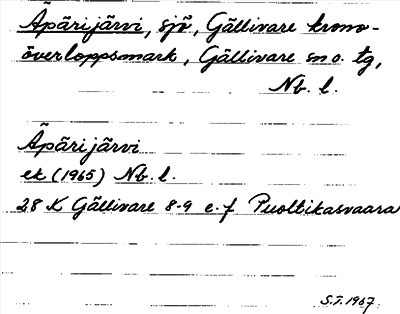 Äpärijärvi, sjö, Gällivare krono-
överloppsmark, Gällivare sn o. tg,
Nb. l.
Äpärijärvi
ek (1965) Nb. l.
28 K Gällivare 8-9 e-f Puoltikasvaara
S.I. 1967.